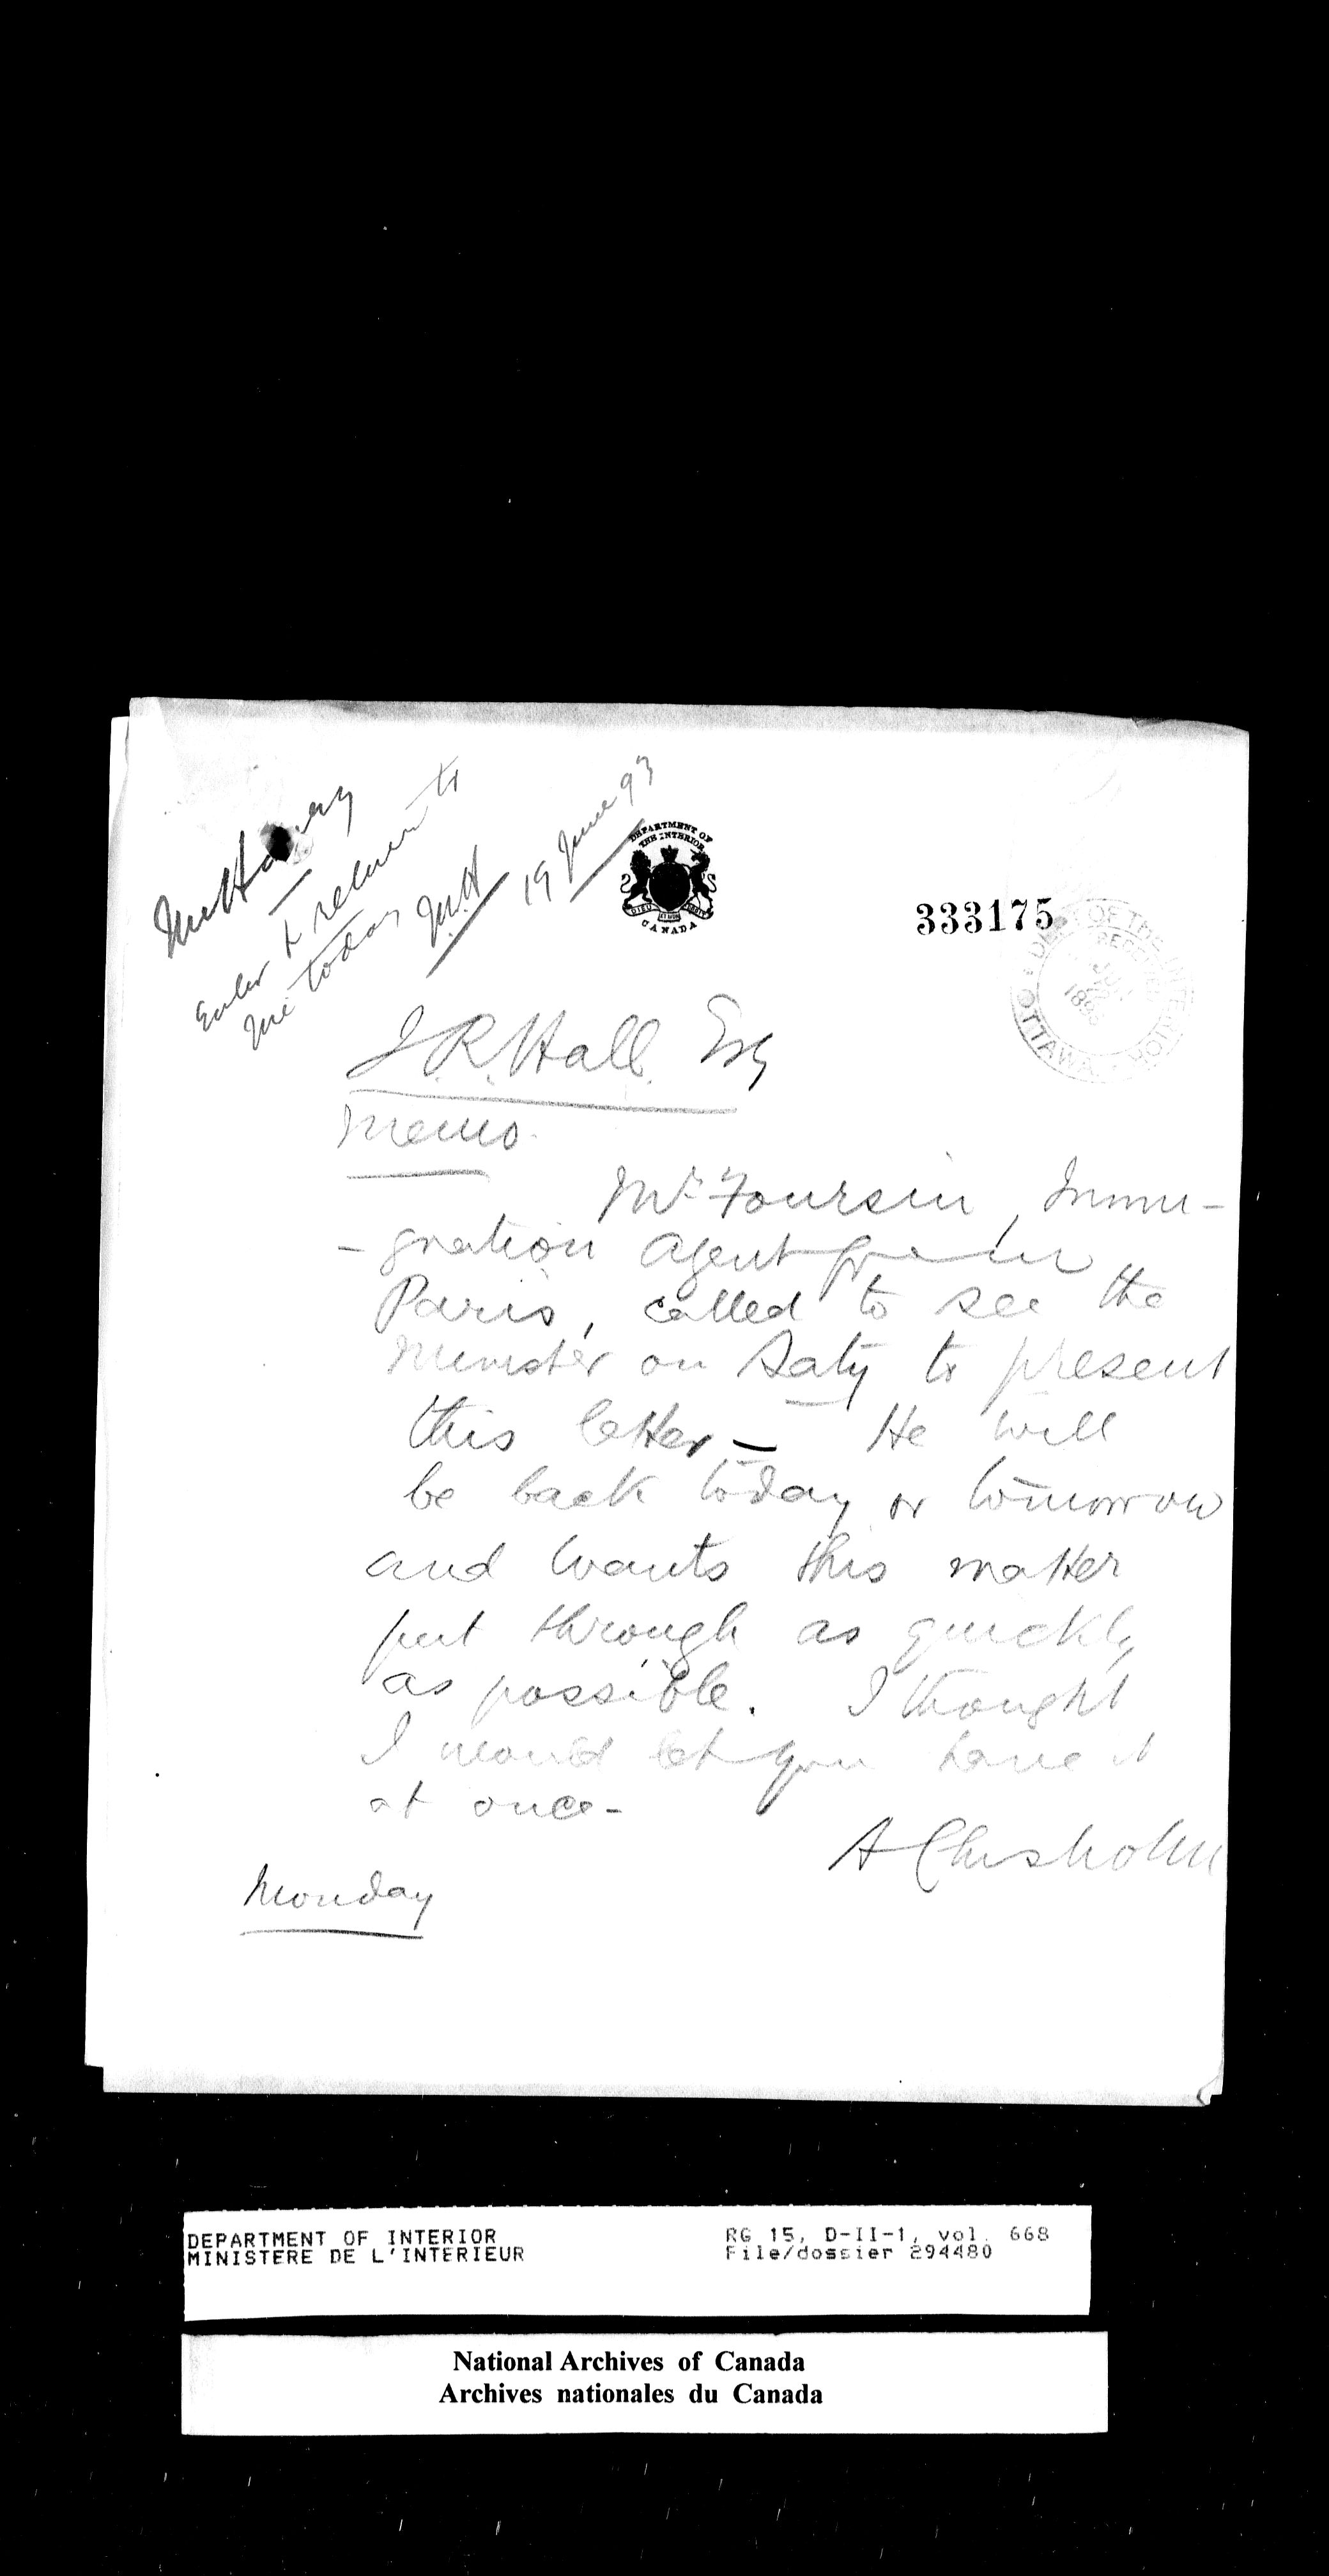 Enter & return to
me today J.R.H 19 June 93
DEPARTMENT OF
THE INTERIOR
DIEU
DROIT
CANADA
333175
DEPT OF THE INTERIOR
OTTAWA
J.R. Hall. Esq
Memo.
Mr. Foursin, Immi-
-gration agent from
Paris, called to see the
Minister on Saty to present
this letter - He will
be back today or tomorrow
and wants this matter
put through as quickly
as possible. I thought
I would let you have it
at once -
A Chisholm
Monday
DEPARTMENT OF INTERIOR
MINISTERE DE L'INTERIEUR
RG 15, D-II-1, vol. 668
File/dossier 294480
National Archives of Canada
Archives nationales du Canada